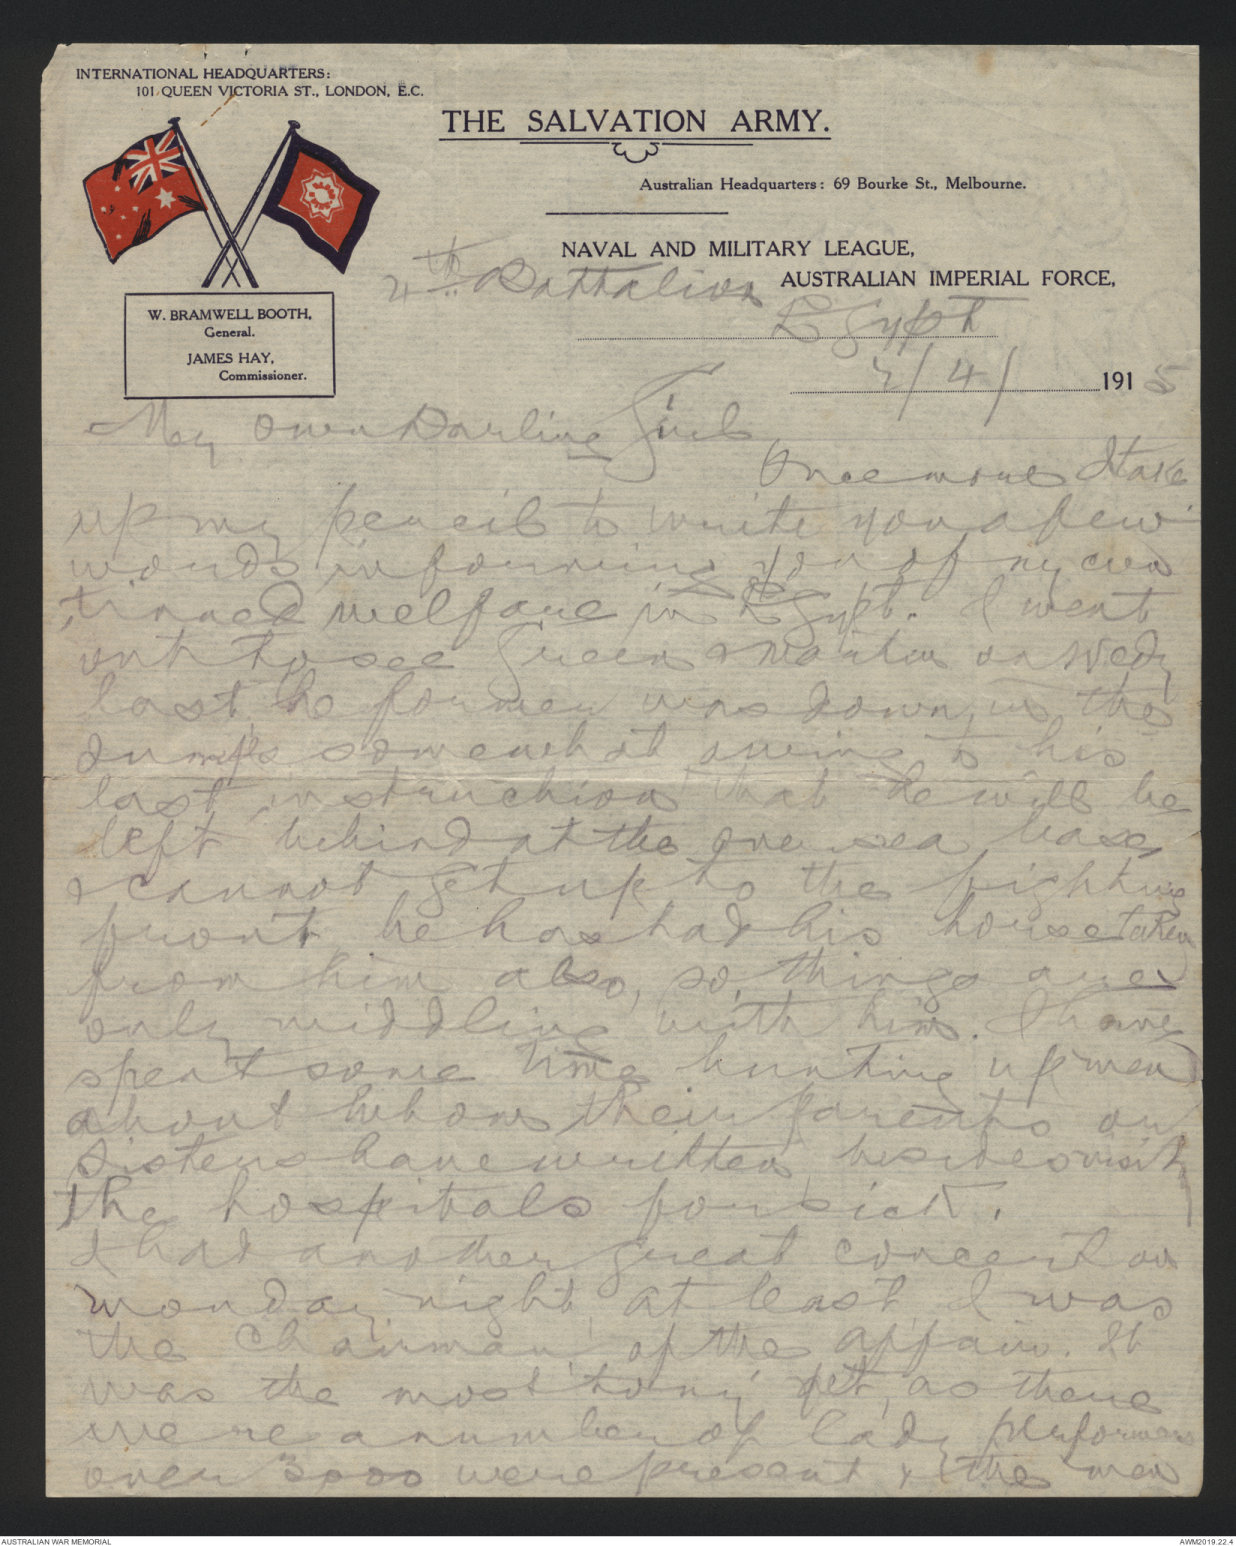 INTERNATIONAL HEADQUARTERS:
101 QUEEN VICTORIA ST., LONDON, E.C.
THE SALVATION ARMY.
Australian Headquarters: 69 Bourke St., Melbourne.
NAVAL AND MILITARY LEAGUE,
AUSTRALIAN IMPERIAL FORCE,
W. BRAMWELL BOOTH,
General.
JAMES HAY,
Commissioner.
4th Battalion
Egypt
2/4/1915
My Own Darling Girl
Once more I take
up my pencil to write you a few
words informing you of my con
tinued welfare in Egypt. I went
out to see Green & Martin on Wedy
last, he former was down in the
dumps somewhat owing to his
last instruction that he will be
left behind at the oversea base
& cannot get up to the fighting
front, he has had his horse taken
from him also, so, things are
only middling with him. I have
spent some time hunting up men
about whom their parents or
sisters have written, besides visitg
the hospitals for sick.
I had another great concert on
Monday night, at least I was
the Chairman of the affair. It
was the most tony yet, as there
were a number of lady performers
over 3000 were present & the men
AUSTRALIAN WAR MEMORIAL
AWM2019.22.4